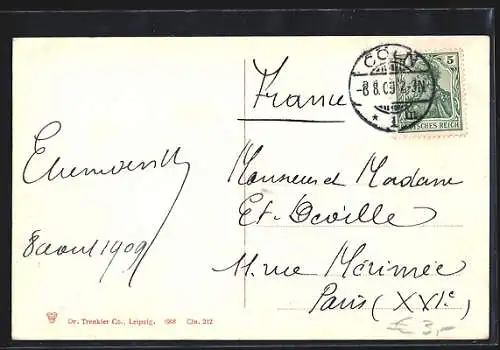 CÖLN
-8.8.09.2-3N.
* 1 m.
5
DEUTSCHES REICH
France
Monsieur et Madame
Et. Deville
11. rue Mérimée
Paris (XXIe
8 aout 1909
Dr. Trenkler Co., Leipzig. 1908 Cln. 212
€ 3,-